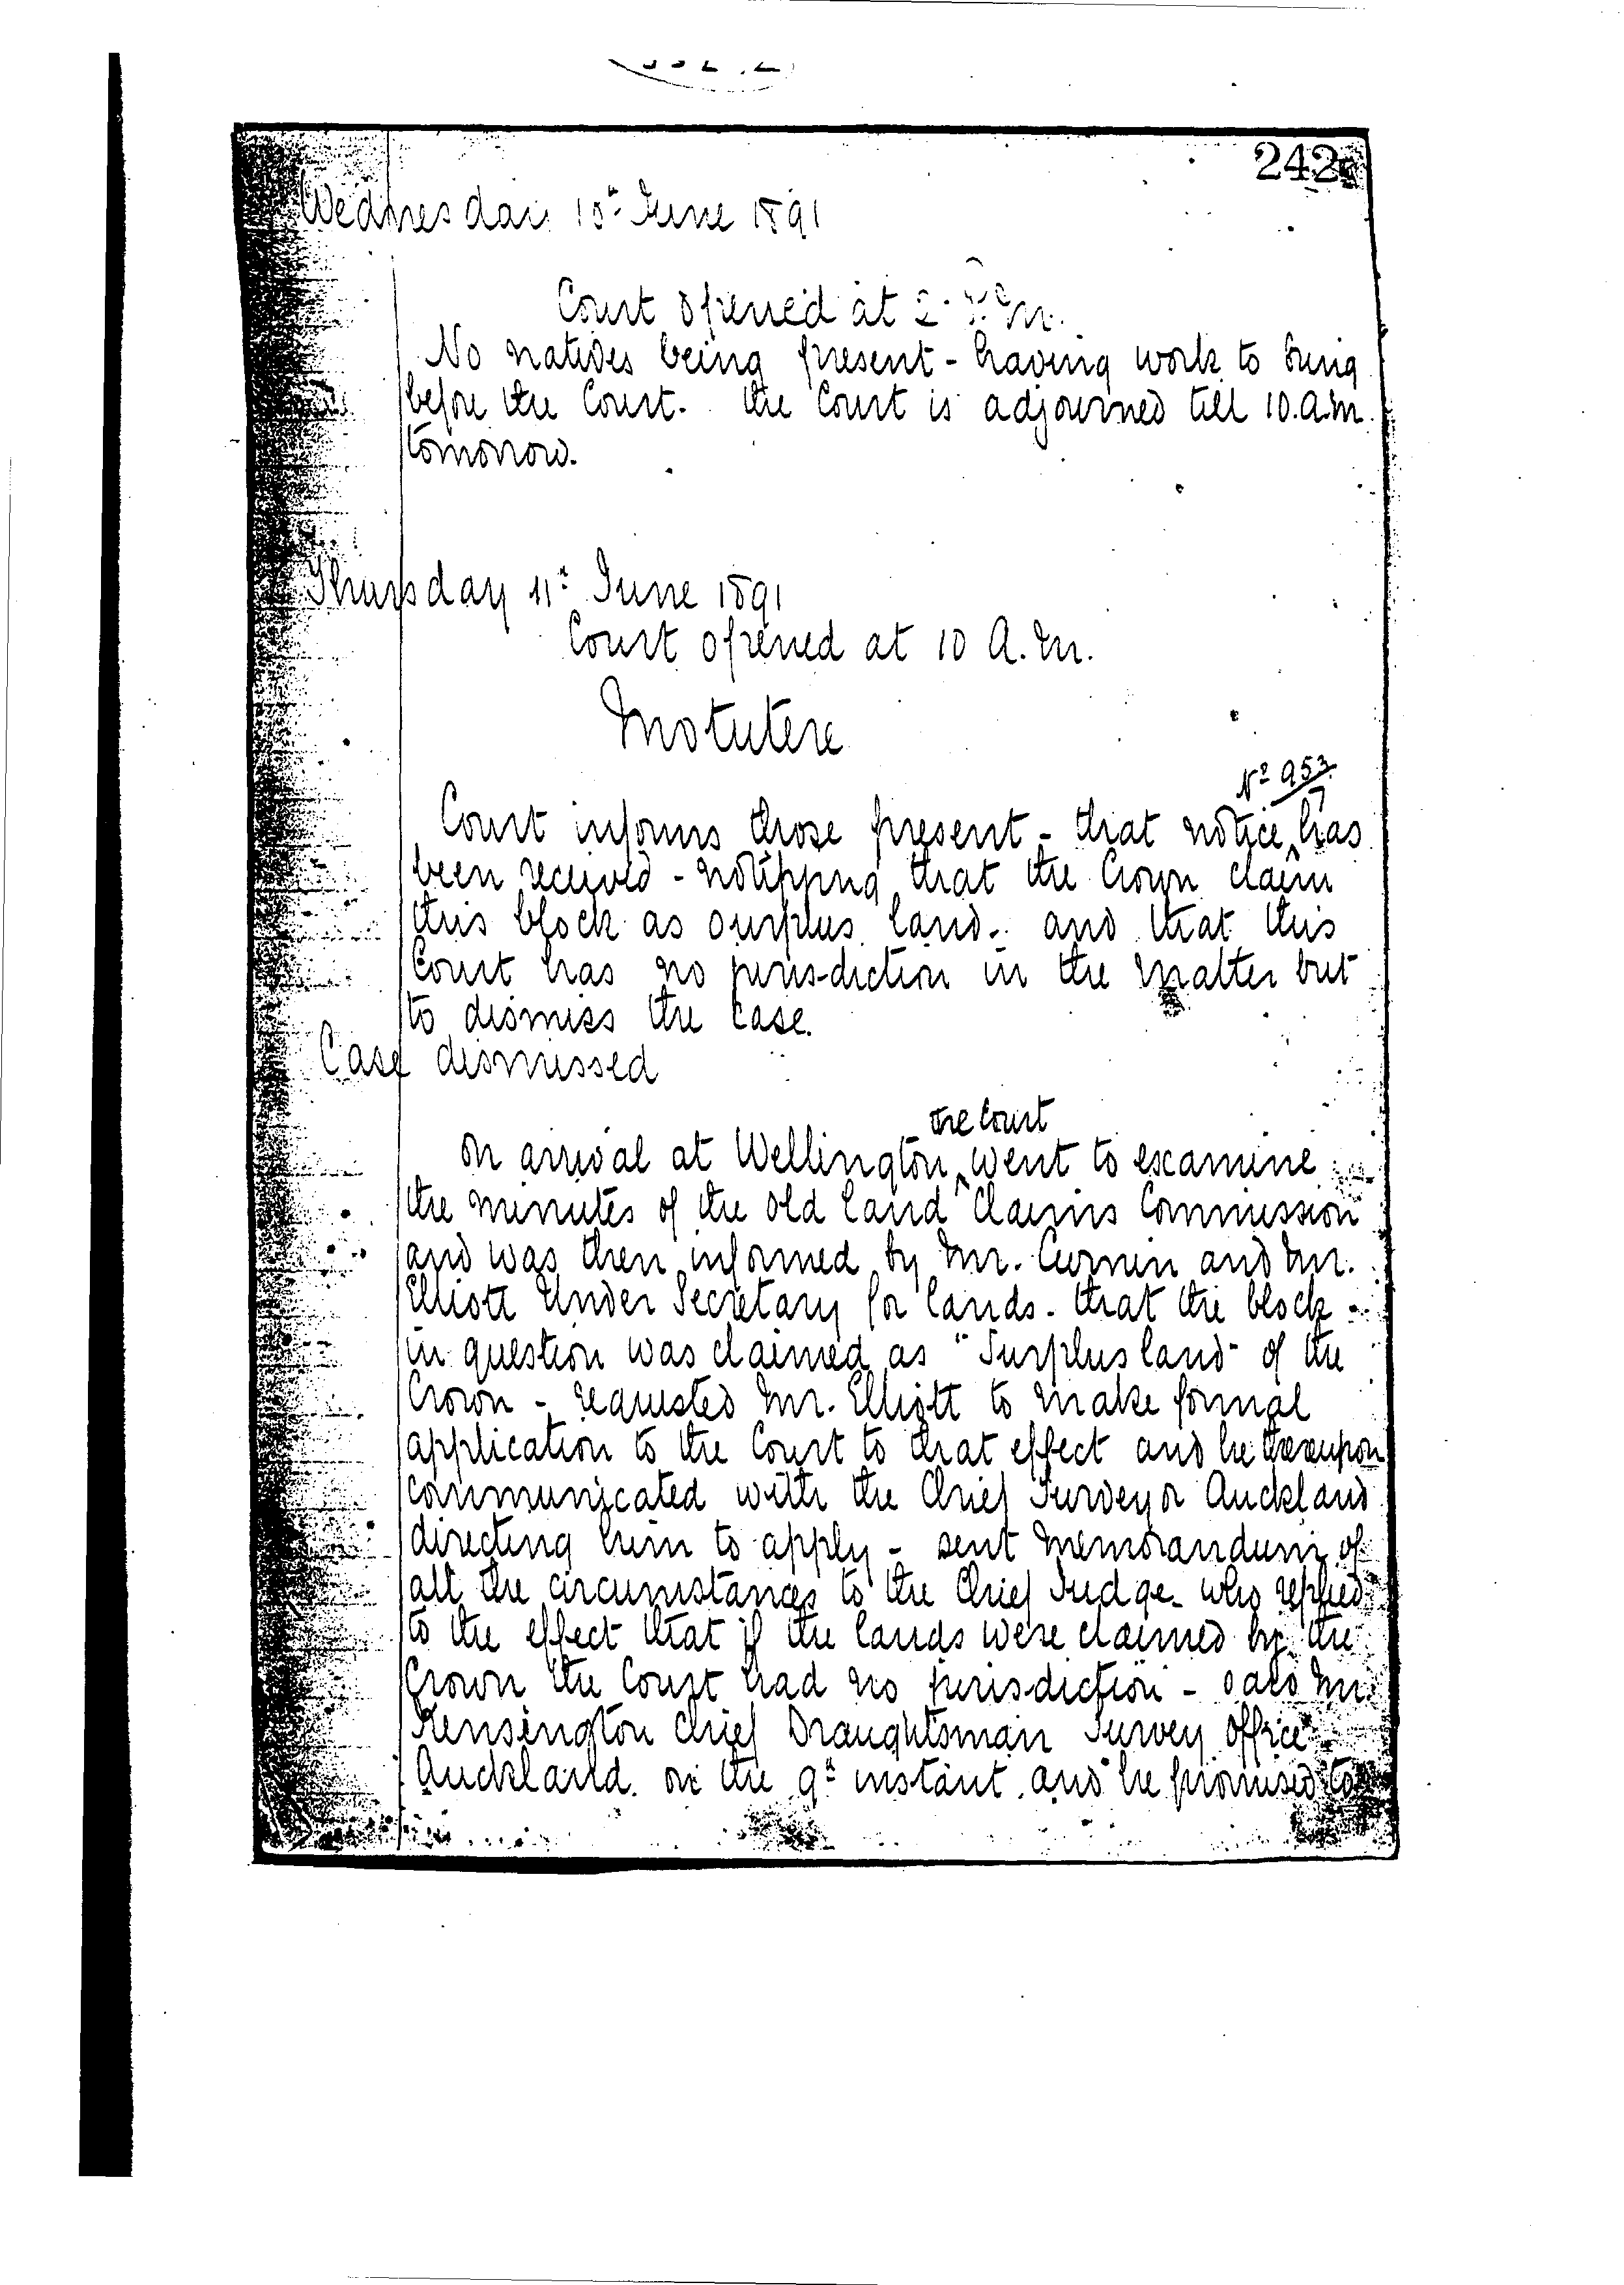 242
Wednesday 10th June 1891
Court opened at 2 P.M.
No natives being present - having work to bring
before the Court. the Court is adjourned till 10.a.m.
tomorrow.
Thursday 11th June 1891
Court opened at 10 A.M.
Motutere
No 953
Court informs those present - that notice has
been received - notifying that the Crown claim
this block as surplus land. and that this
Court has no juris-diction in the matter but
to dismiss the case.
Case dismissed
the Court
On arrival at Wellington, went to examine
the minutes of the old Land Claims Commission
and was then informed by Mr. Curnin and Mr.
Elliott Under Secretary for lands. that the block
in question was claimed as "Surplus land" of the
Crown - requested Mr. Elliott to make formal
application to the Court to that effect and he thereupon
communicated with the Chief Surveyor Auckland
directing him to apply - sent Memorandum of
all the circumstances to the Chief Judge - who replied
to the effect that if the lands were claimed by the
Crown the Court had no juris-diction - Mr.
Kensington Chief Draughtsman Survey Office
Auckland. on the 9th instant. and he promised to